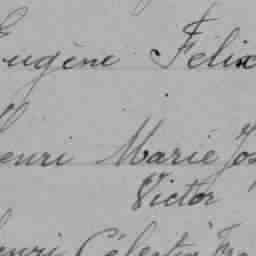 Eugène Félix
Henri Marie Jos
Victor
Henri Célestin Fra